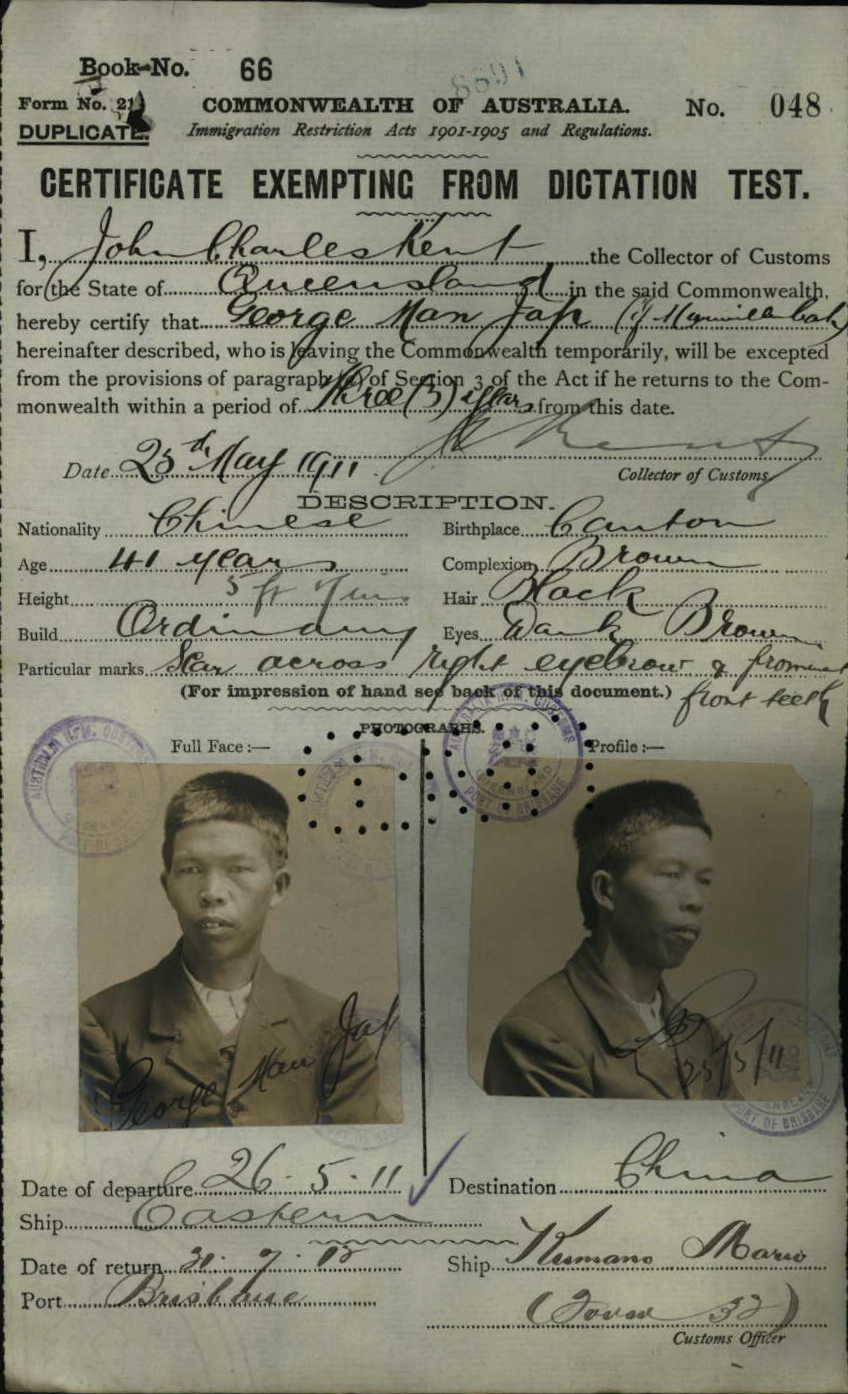 Book No. 66
8691
Form No. 21.
COMMONWEALTH OF AUSTRALIA.
No. 048
DUPLICATE.
Immigration Restriction Acts 1901-1905 and Regulations.
CERTIFICATE EXEMPTING FROM DICTATION TEST.
I, John Charles Kent the Collector of Customs
for the State of Queensland in the said Commonwealth,
hereby certify that George Man Jap (of
hereinafter described, who is leaving the Commonwealth temporarily, will be excepted
from the provisions of paragraph of Section 3 of the Act if he returns to the Com-
monwealth within a period of Three (3) years from this date.
Date 25th May 1911. Kent
Collector of Customs
DESCRIPTION.
Nationality Chinese Birthplace Canton
Age 41 years Complexion Brown
Height 5 ft 7 ins. Hair Black
Build Ordinary Eyes Dark Brown
Particular marks Scar across right eyebrow & prominent
(For impression of hand see back of this document.) front teeth
PHOTOGRAPHS.
Full Face :— Profile :—
George Man Jap
25/5/11
PORT OF BRISBANE
Date of departure 26.5.11 Destination China
Ship Eastern
Date of return 21.7.12 Ship Kumano Maru
Port Brisbane
Customs Officer